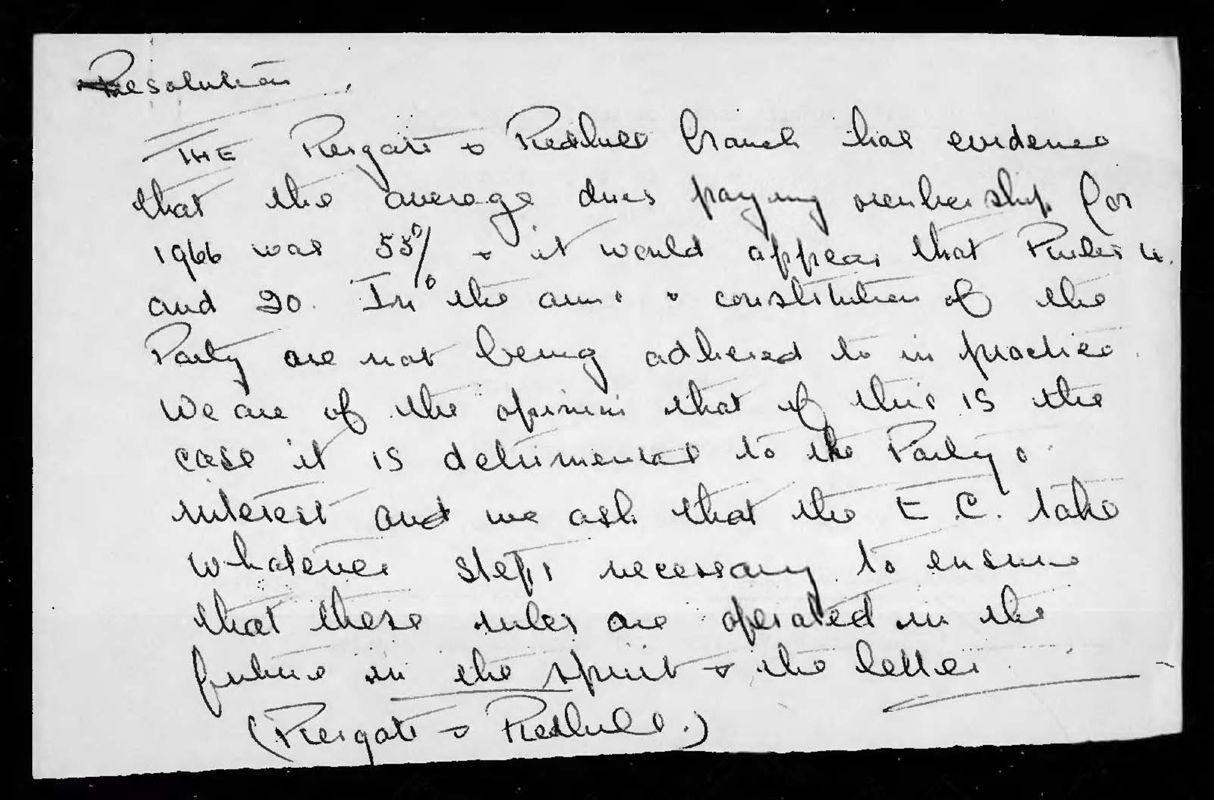 Resolution.
THE Reigate & Redhill branch has evidence
that the average dues paying membership for
1966 was 55% & it would appear that Rules 4.
and 20. In the aims & constitution of the
Party are not being adhered to in practice.
We are of the opinion that if this is the
case it is detrimental to the Party's
interest and we ask that the E.C. take
whatever steps necessary to ensure
that these rules are operated in the
future in the spirit & the letter
(Reigate & Redhill.)